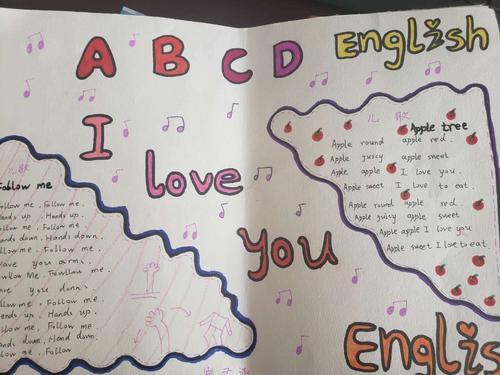 A B C D English
I
love
you
儿歌
Follow me
Follow me, Follow me.
Hands up, Hands up.
Follow me, Follow me.
Hands down, Hands down.
Follow me, Follow me.
you arms.
Me, Follow me.
you
Follow me, Follow me.
Hands up, Hands up.
Follow me, Follow me.
Hands down, Hand down.
Follow me, Follow
儿歌
Apple tree
Apple round apple red.
Apple juicy apple sweet.
Apple apple I love you.
Apple sweet I love to eat.
Apple round apple red.
Apple juicy apple sweet
Apple apple I love you
Apple sweet I love to eat.
English